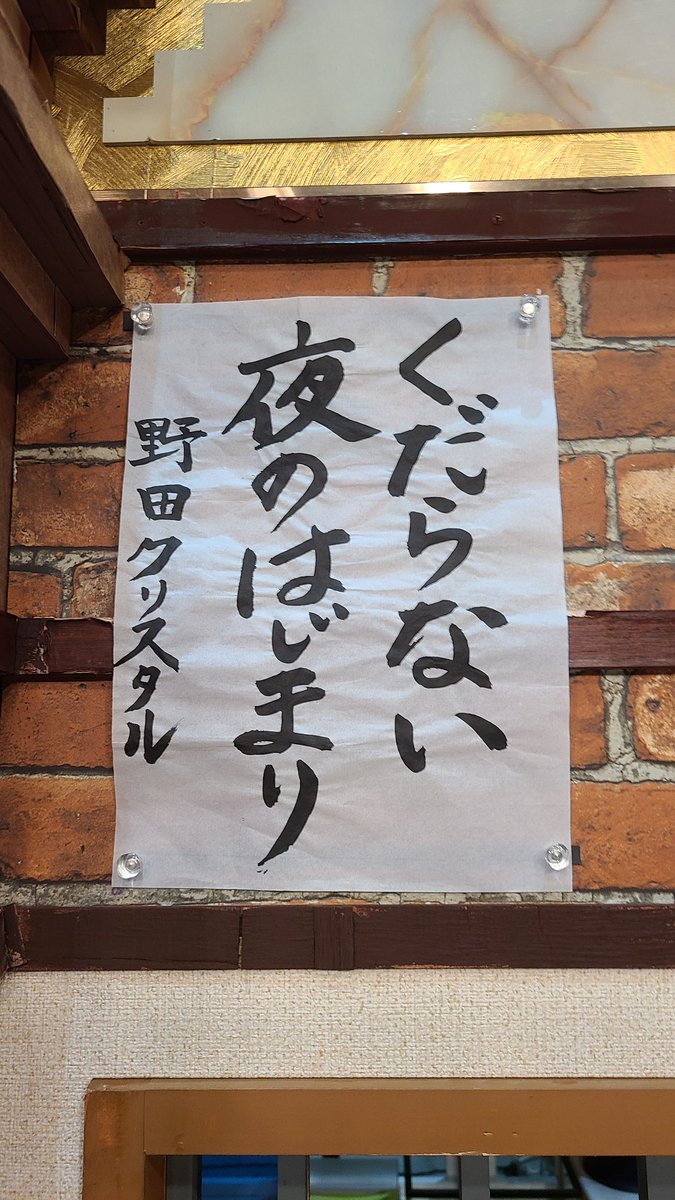 くだらない
夜のはじまり
野田クリスタル